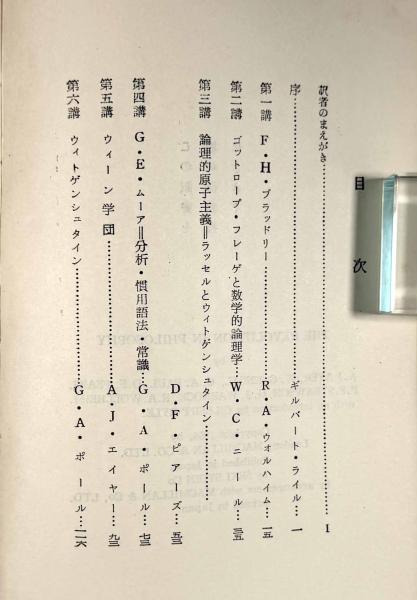 目次
訳者のまえがき……………………………………1
序……………………………………ギルバート・ライル…一
第一講 F・H・ブラッドリー……………………R・A・ウォルハイム…一五
第二講 ゴットロープ・フレーゲと数学的論理学…W・C・ニール…三五
第三講 論理的原子主義=ラッセルとウィトゲンシュタイン……………
D・F・ピアーズ…五三
第四講 G・E・ムーア=分析・慣用語法・常識…G・A・ポール…七三
第五講 ウィーン学団……………………A・J・エイヤー…九三
第六講 ウィトゲンシュタイン……………………G・A・ポール…一一六